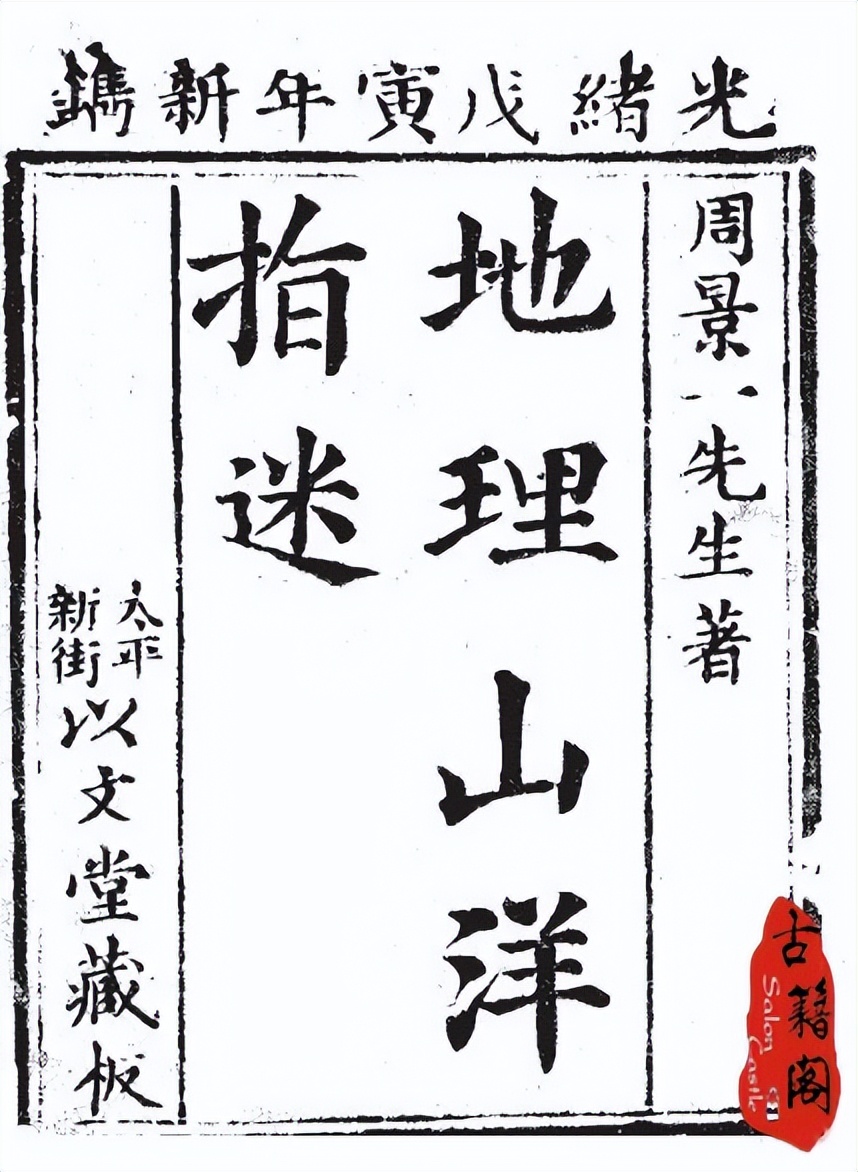 光緒戊寅年新鐫
周景一先生著
地理山洋
指迷
太平
新街
以文堂藏板
古籍阁
Salon Castle